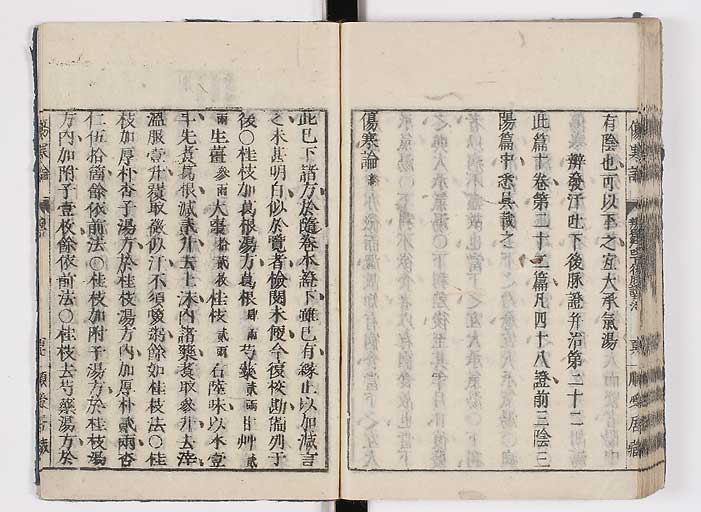 有陰也可以下之宜大承氣湯
辨發汗吐下後脉證并治第二十二
此篇十卷第二十二篇凡四十八證前三陰三
陽篇中悉具載之
傷寒論
此已下諸方於隨卷本證下雖已有緣止以加減言
之未甚明白似於覽者檢閱未便今復校勘備列于
後○桂枝加葛根湯方葛根 芍藥貳兩 甘艸貳
兩生薑參兩大棗拾貳枚桂枝貳兩右陸味以水壹
斗先煑葛根減貳升去上沫内諸藥煑取參升去滓
溫服壹升覆取微似汗不須啜粥餘如桂枝法○桂
枝加厚朴杏子湯方於桂枝湯方内加厚朴貳兩杏
仁伍拾箇餘依前法○桂枝加附子湯方於桂枝湯
方内加附子壹枚餘依前法○桂枝去芍藥湯方於
傷寒論
傷寒論